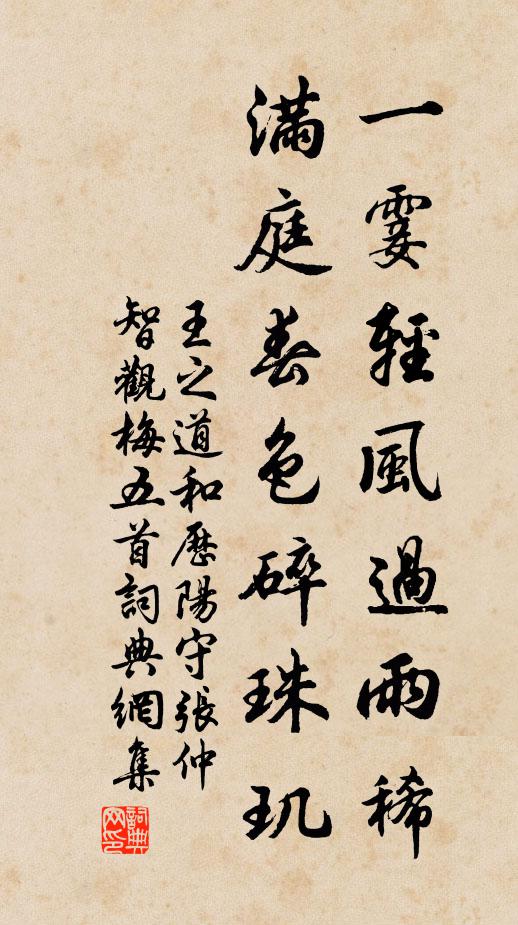 一霎輕風過雨稀
滿庭春色碎珠玑
王之道和歷陽守張仲
智觀梅五首詞典網集
詞典
网印